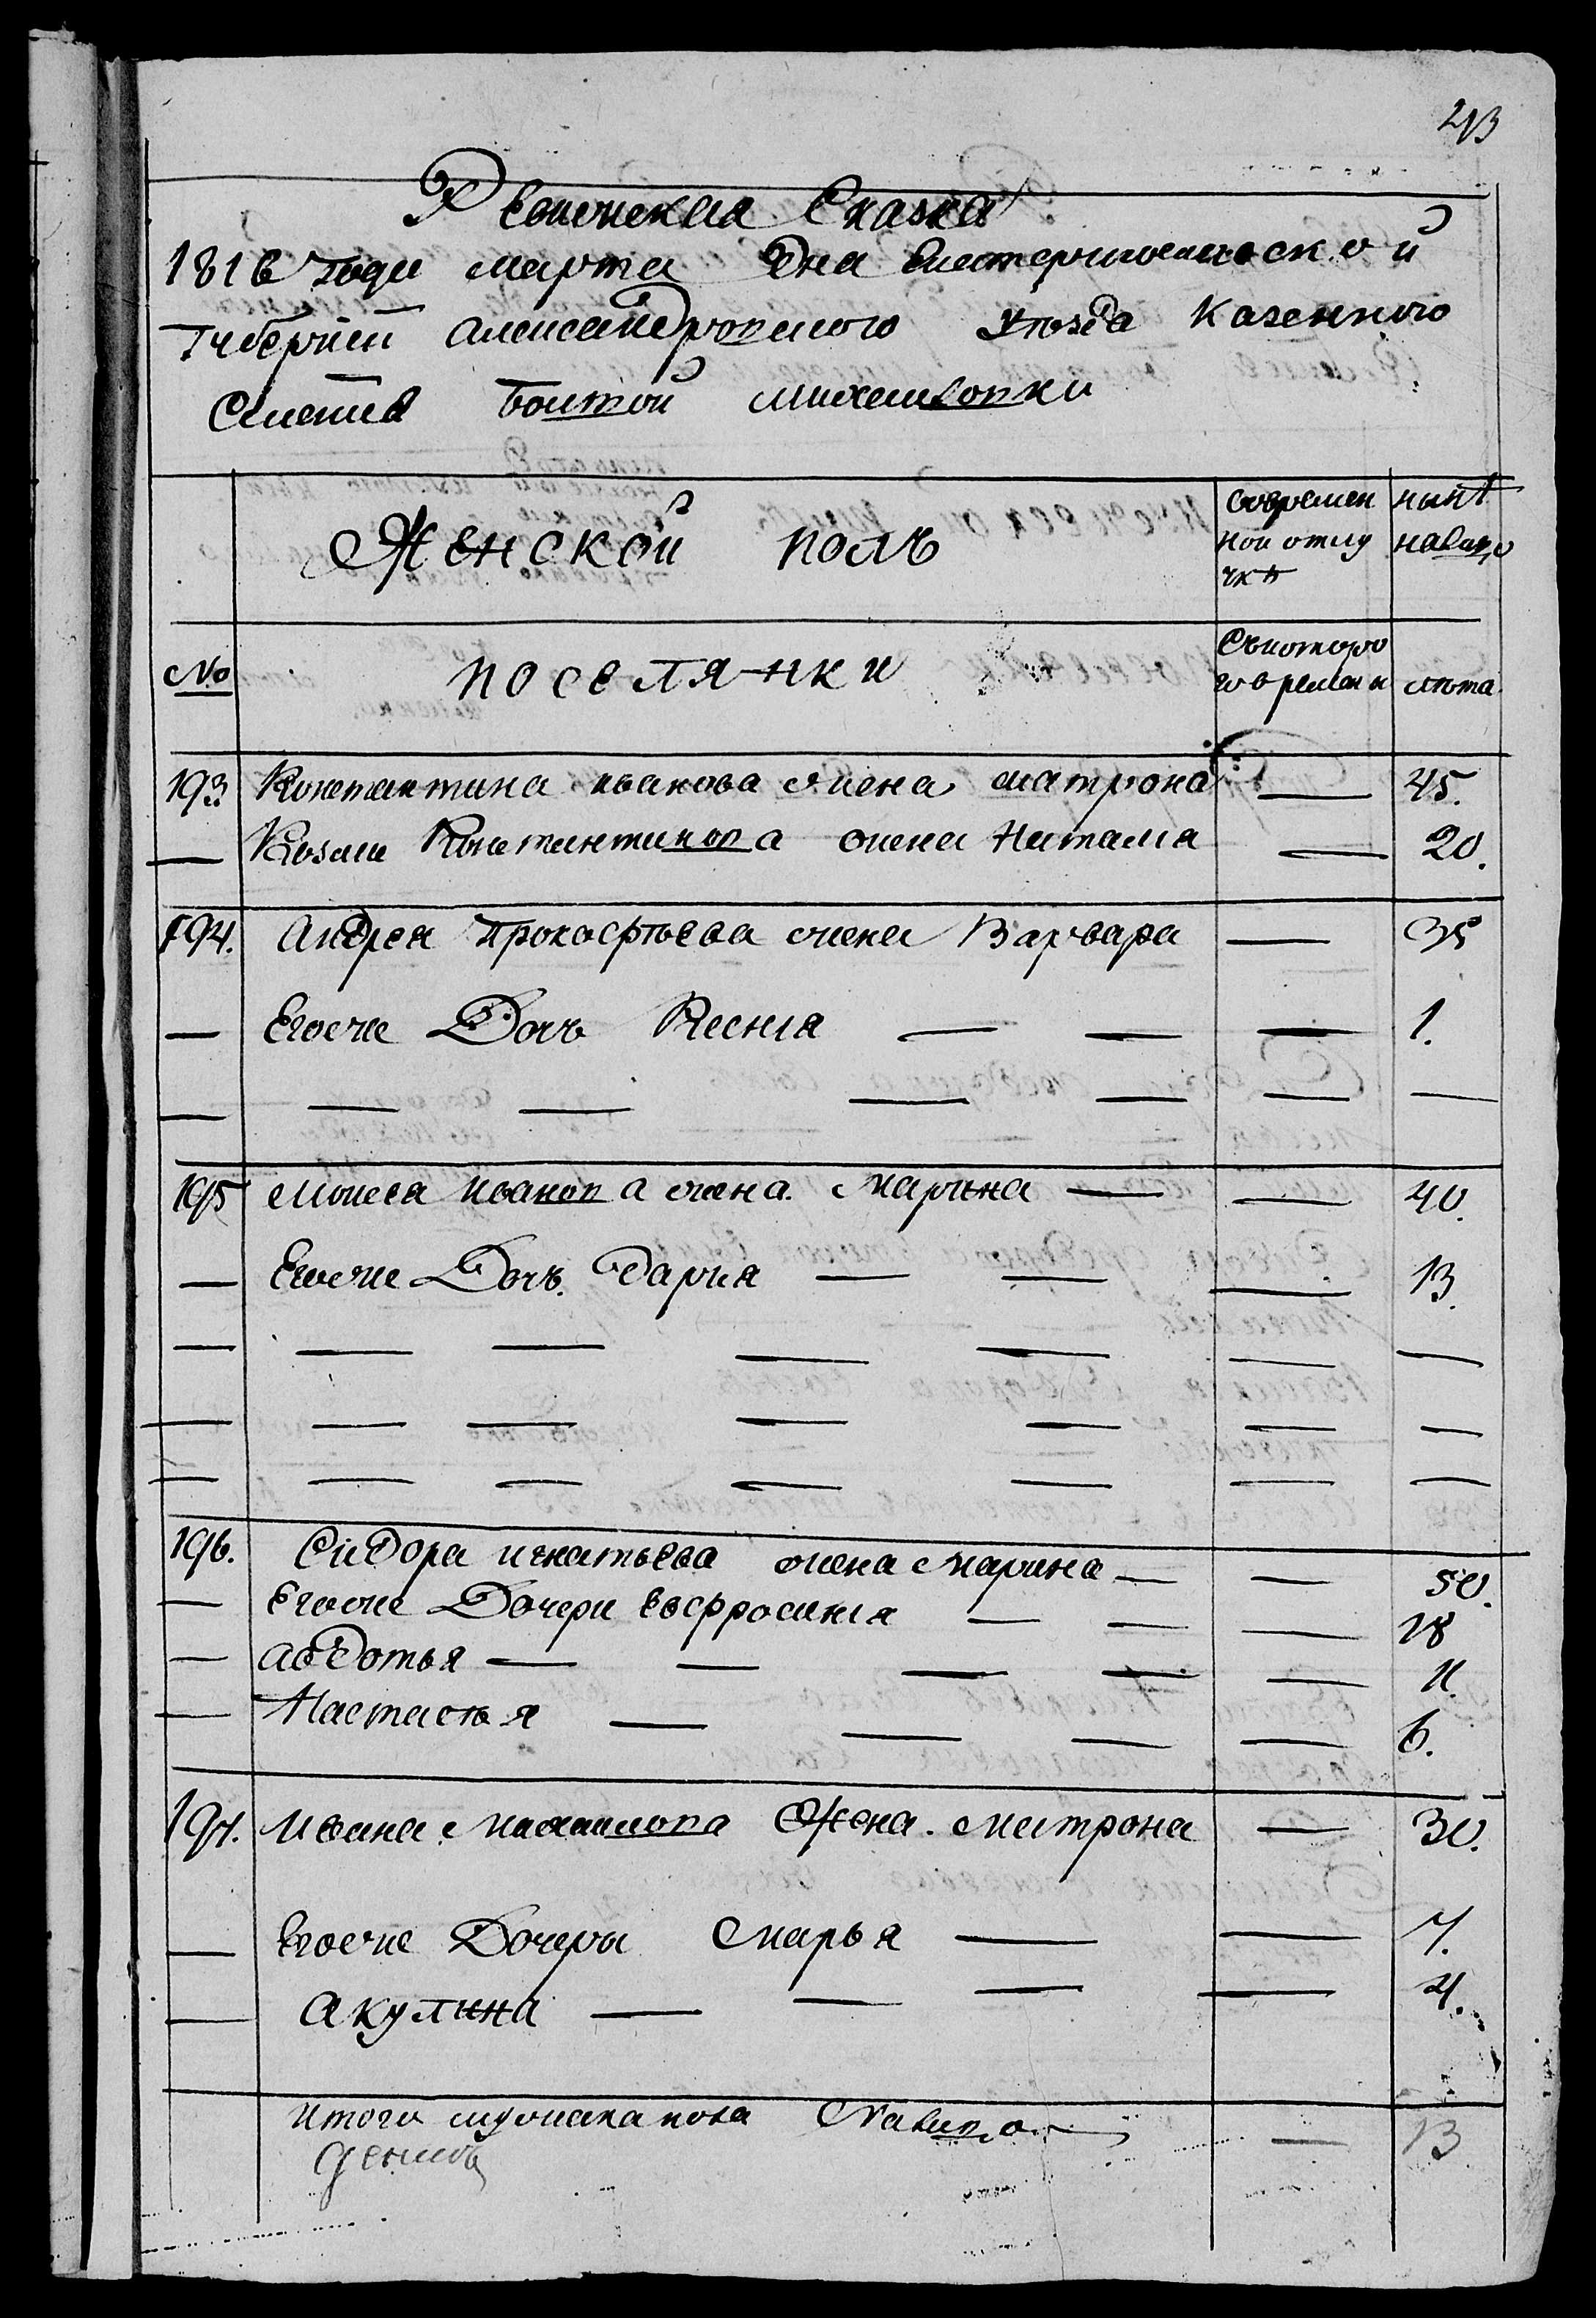 213
Ревизская Сказка
1816 года марта Дня Екатеринославской
Губернии Александровского уѣзда казенного
Селения Болшой михаиловки
Женской полъ
Вовремен
ной отлу
чкѣ
нынѣ
налицо
№
поселянки
Скоторо
го времени
лѣта
193. Константина иванова жена матрона — 45.
— Козми Константинова жена Наталия — 20.
194. Андрея Прокофьева жена Варвара — 35
— Егоже Дочь Ксения — — — 1.
— — — — — — —
195 Моисея иванова жена. Марина — — 40.
— Егоже Дочь. Дария — — — 13.
— — — — — — —
— — — — — — —
— — — — — — —
196. Сидора игнатьева жена Марина — — 50.
— Егоже Дочери Евфросиния — — — 18
— авдотья — — — — — 11.
— Настасья — — — — 6.
197. Ивана Михаилова Жена. Матрона — 30.
— Егоже Дочери Марья — — 7.
— Акулина — — — — 4.
итого женска пола Налицо — 13